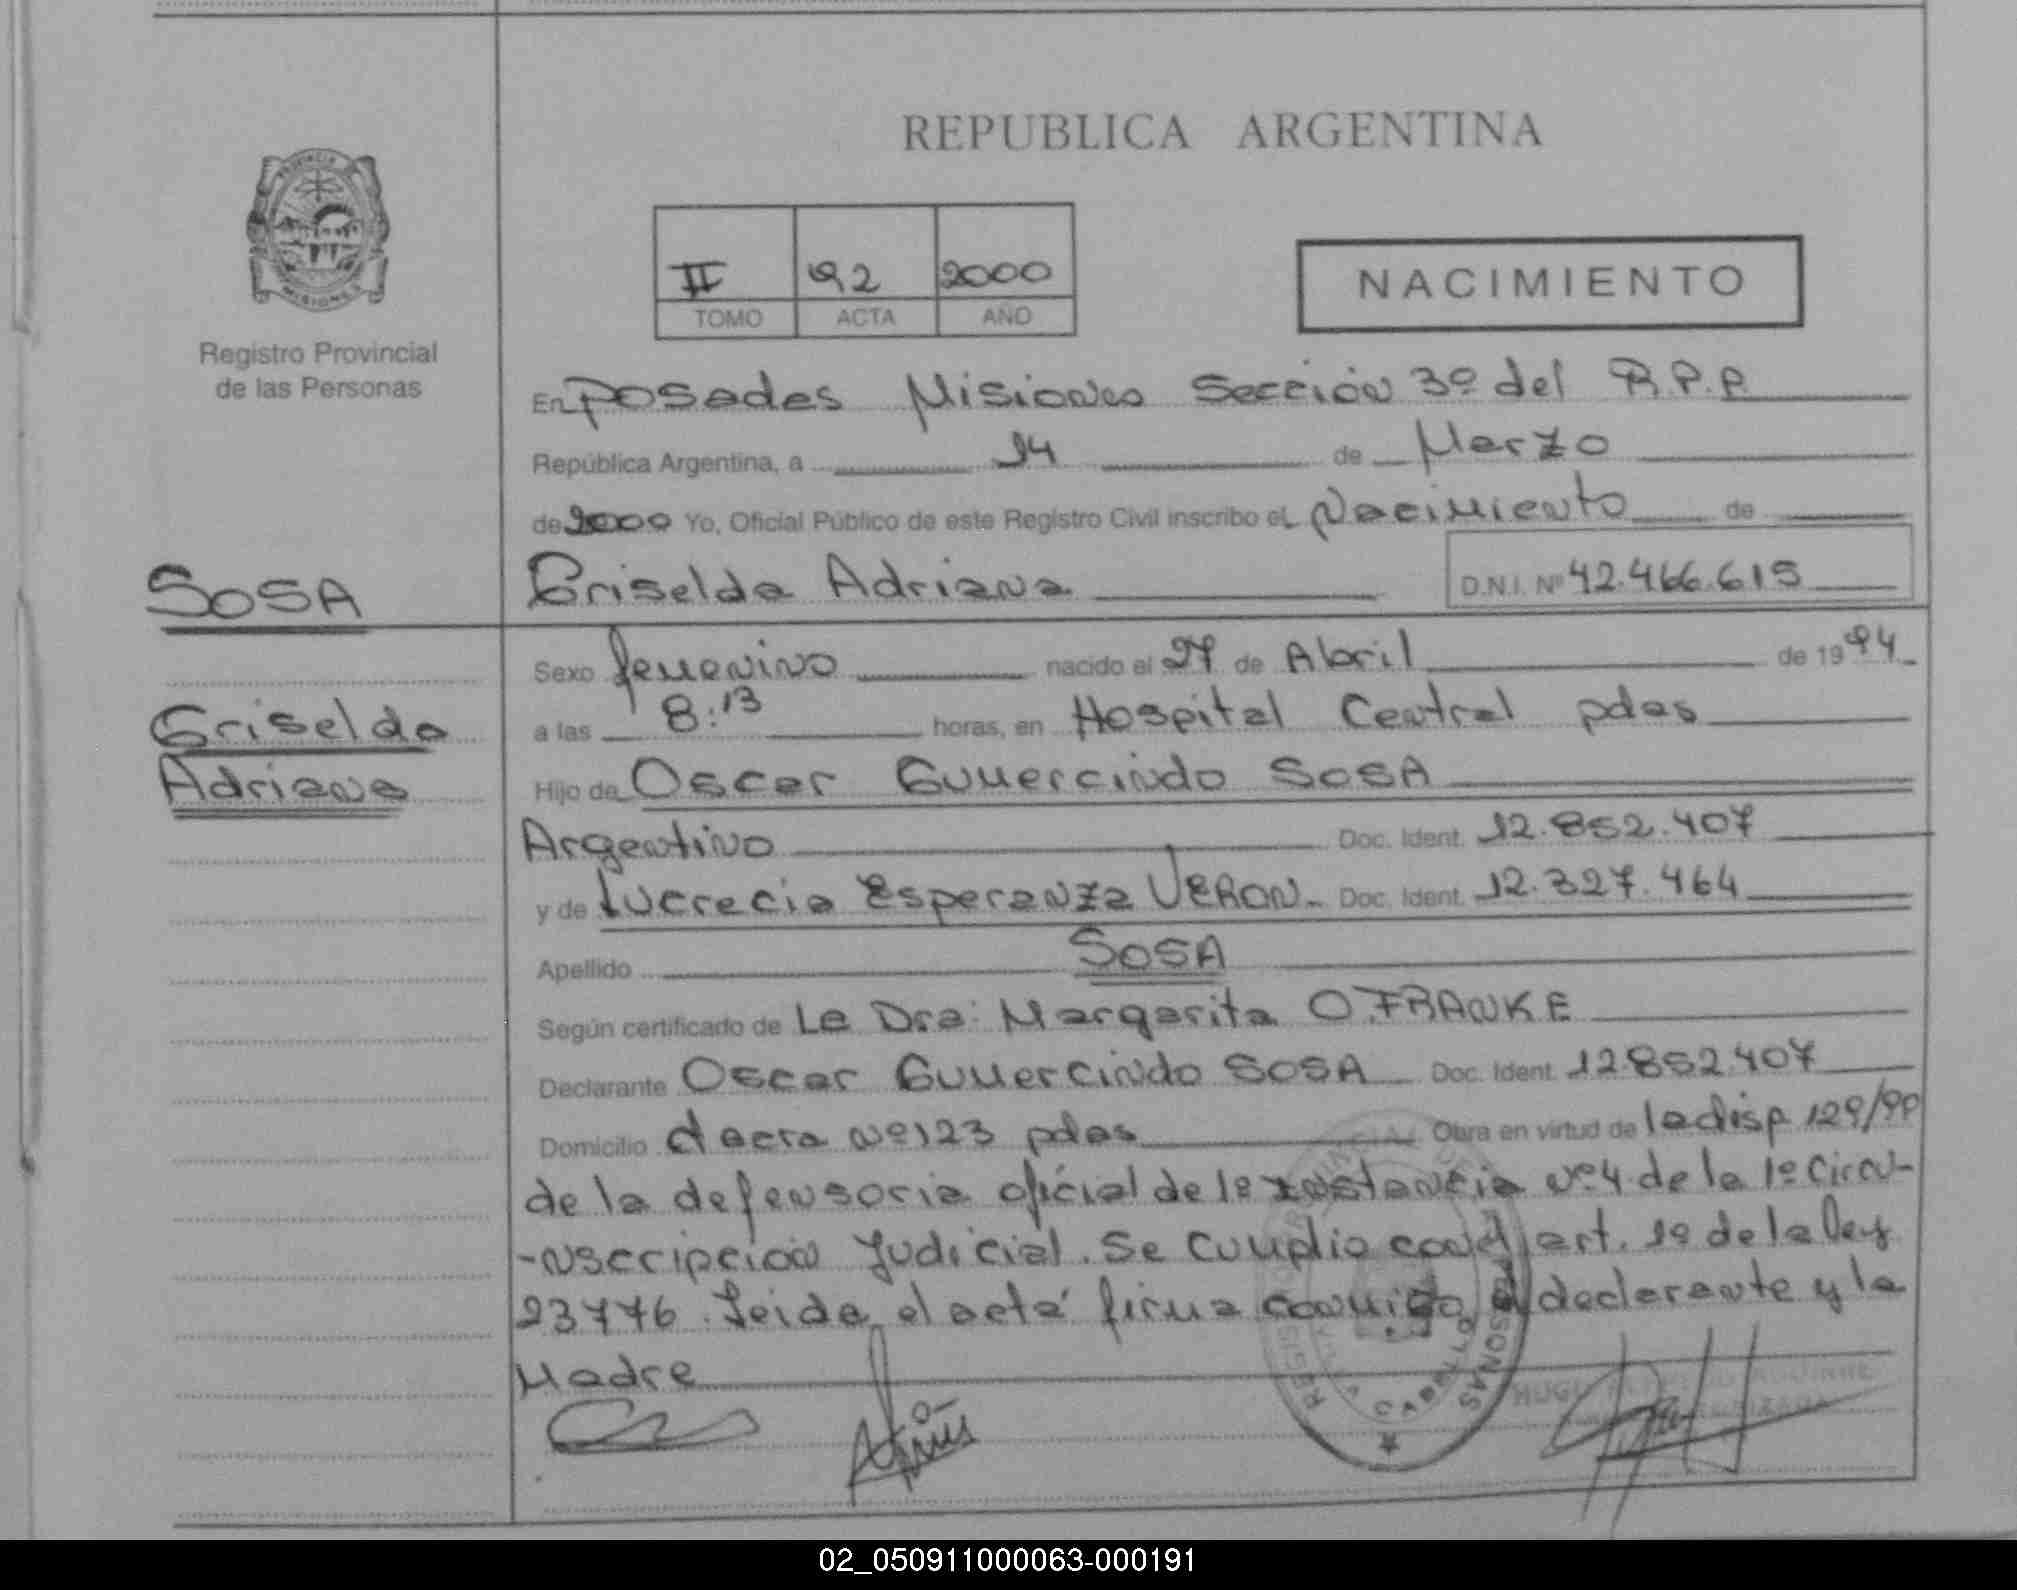 REPUBLICA ARGENTINA
PROVINCIA
MISIONES
Registro Provincial
de las Personas
II 92 2000
TOMO ACTA AÑO
NACIMIENTO
En Posadas Misiones Sección 3º del R.P.P.
República Argentina, a 14 de Marzo
de 2000 Yo, Oficial Público de este Registro Civil inscribo el Nacimiento de
SOSA
Griselda Adriana
D.N.I. Nº 42.466.615
Griselda
Adriana
Sexo femenino nacido el 27 de Abril de 1994
a las 8:13 horas, en Hospital Central pdas
Hijo de Oscar Gumercindo SOSA
Argentino Doc. Ident. 12.852.407
y de Lucrecia Esperanza VERON Doc. Ident. 12.327.464
Apellido SOSA
Según certificado de La Dra. Margarita O. FRANKE
Declarante Oscar Gumercindo SOSA Doc. Ident. 12.852.407
Domicilio chacra Nº 123 pdas Obra en virtud de la disp 129/99
de la defensoria oficial de 1º instancia Nº 4 de la 1º Circu-
-nscripción Judicial. Se cumplio con el art. 1º de la ley
23776. Leida el acta firma conmigo el declarante y la
Madre
HUGO AGUIRRE
02_050911000063-000191